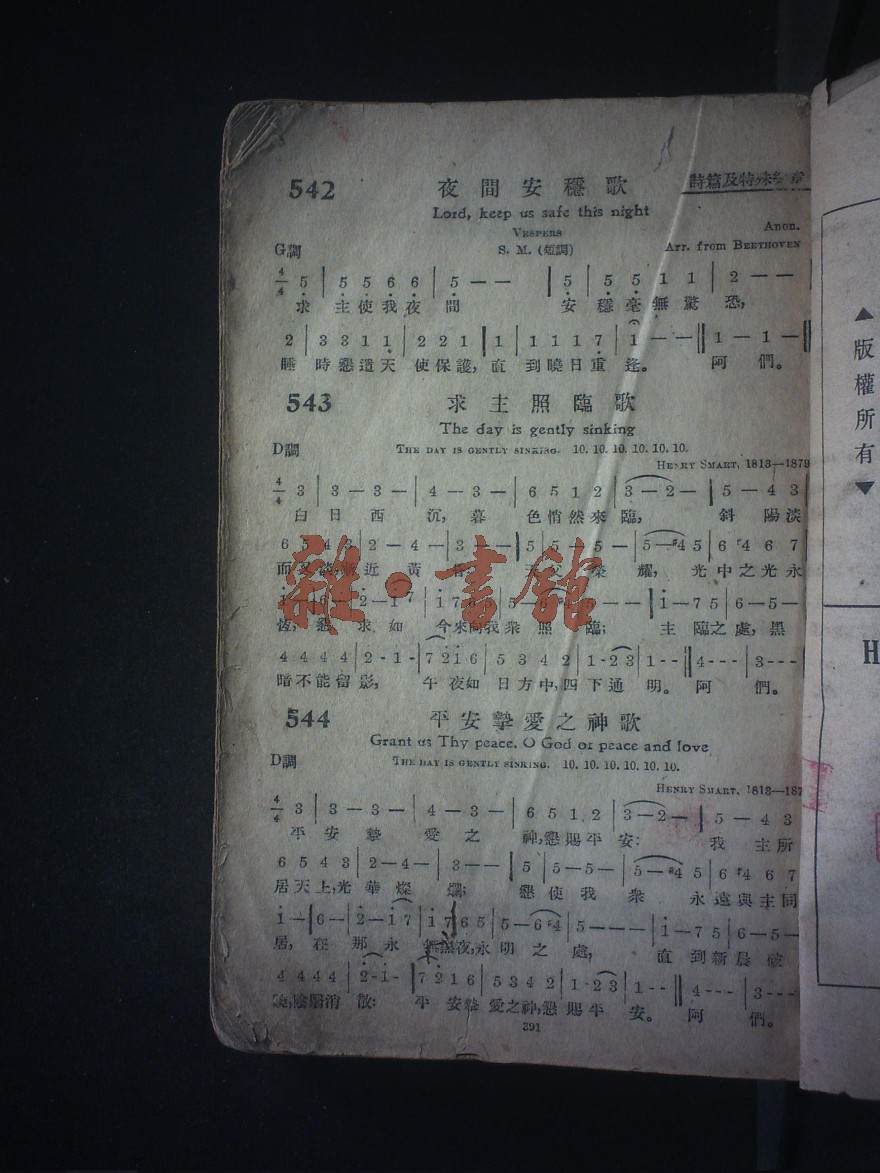 542 夜間安穩歌
Lord, keep us safe this night
VESPERS Anon.
G調 S. M. (短調) Arr. from BEETHOVEN
4/4 5 | 5 5 6 6 | 5 - - | 5 | 5 5 1 1 | 2 - -
求 主使我夜 間 安 穩毫無驚 恐,
2 | 3 3 1 1 | 2 2 1 | 1 | 1 1 1 7 | 1 - - | 1 - 1 - |
睡 時懇遣天 使保護, 直 到曉日重 逢。 阿 們。
543 求主照臨歌
The day is gently sinking
D調 THE DAY IS GENTLY SINKING. 10. 10. 10. 10. 10. 10.
HENRY SMART, 1813—1879
4/4 3 | 3 - 3 - | 4 - 3 - | 6 5 1 2 | 3 - 2 - | 5 - 4 3
白 日 西 沉, 暮 色悄然來 臨, 斜 陽淡
6 5 4 3 | 2 - 4 - | 3 - | 5 | 5 - 5 - | 5 - #4 5 | 6 #4 6 7
近 黃 耀, 光 中之光永
恆, 懇 求 如 今來向我衆 照 臨; 主 臨之處, 黑
4 4 4 4 | 2 - 1 - | 7 2 1 6 | 5 3 4 2 | 1 - 2 3 | 1 - - | 4 - - - | 3 - - - |
暗不能留影, 午 夜如 日方中,四 下通 明。 阿 們。
544 平安摯愛之神歌
Grant us Thy peace, O God of peace and love
D調 THE DAY IS GENTLY SINKING. 10. 10. 10. 10. 10. 10.
HENRY SMART, 1813—187
4/4 3 | 3 - 3 - | 4 - 3 - | 6 5 1 2 | 3 - 2 - | 5 - 4 3
平 安 摯 愛 之 神,懇賜平 安: 我 主所
6 5 4 3 | 2 - 4 - | 3 - - | 5 | 5 - 5 - | 5 - #4 5 | 6 #4 6 7
居天上,光 華 燦 爛; 懇 使 我 衆 永 遠與主同
1 - | 6 - | 2 - 1 7 | 1 7 6 5 | 5 - 6 #4 | 5 - - - | 1 - 7 5 | 6 - 5 -
居, 在 那 永 無黑夜,永 明 之 處, 直 到新晨
4 4 4 4 | 2 - 1 - | 7 2 1 6 | 5 3 4 2 | 1 - 2 3 | 1 - - | 4 - - - | 3 - - -
陰翳消 散: 平 安摯 愛之神,懇 賜平 安。 阿 們。
391
雜·書館
▲版權所有▼
H